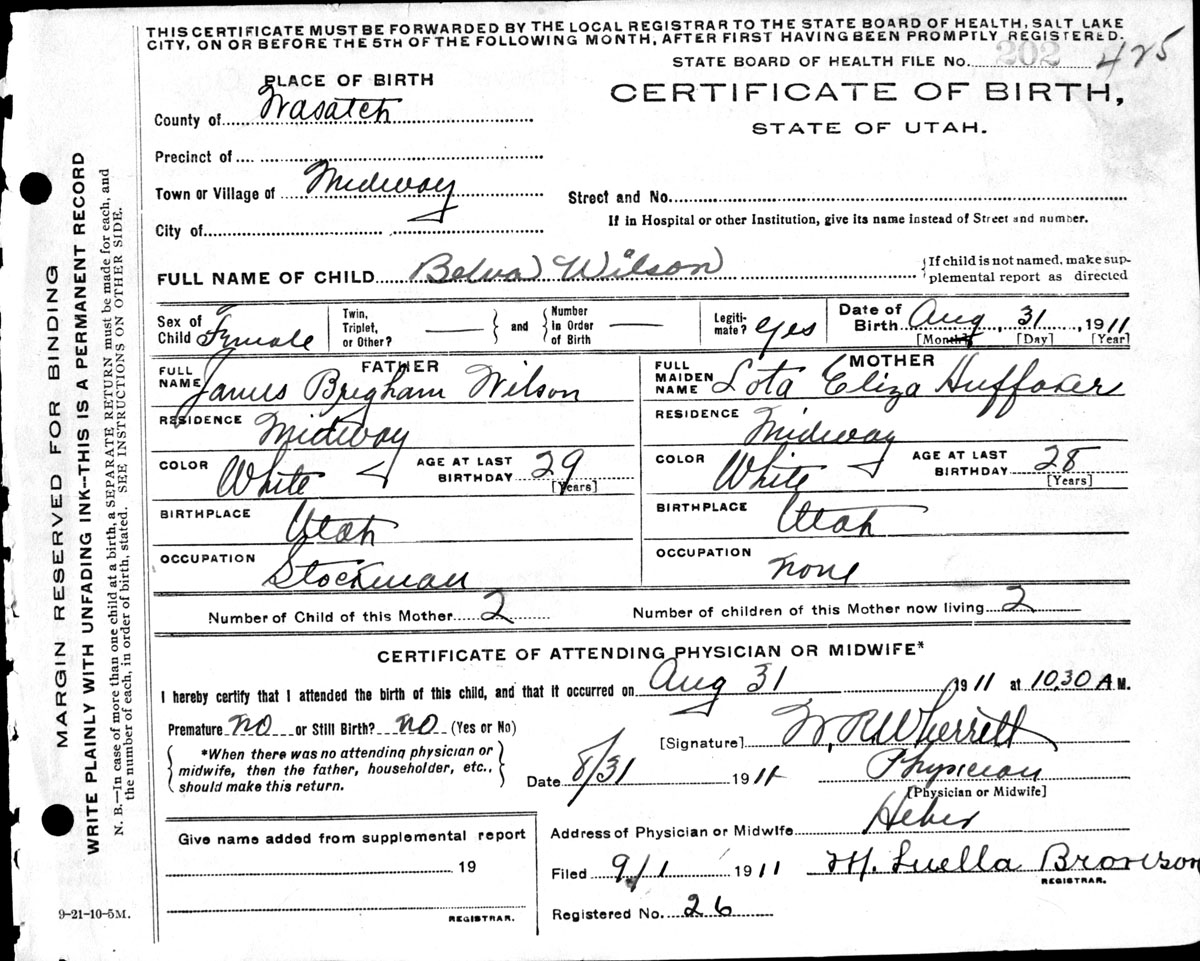 THIS CERTIFICATE MUST BE FORWARDED BY THE LOCAL REGISTRAR TO THE STATE BOARD OF HEALTH, SALT LAKE
CITY, ON OR BEFORE THE 5TH OF THE FOLLOWING MONTH, AFTER FIRST HAVING BEEN PROMPTLY REGISTERED.
STATE BOARD OF HEALTH FILE No. 202 425
PLACE OF BIRTH
CERTIFICATE OF BIRTH,
STATE OF UTAH.
County of Wasatch
Precinct of
Town or Village of Midway
Street and No.
If in Hospital or other Institution, give its name instead of Street and number.
City of
FULL NAME OF CHILD Belva Wilson
If child is not named, make sup-
plemental report as directed
Sex of Child Female
Twin, Triplet, or Other?
and
Number In Order of Birth
Legiti-mate? yes
Date of Birth Aug, 31, 1911
[Month] [Day] [Year]
FATHER
FULL NAME James Brigham Wilson
RESIDENCE Midway
COLOR White AGE AT LAST BIRTHDAY 29
[Years]
BIRTHPLACE Utah
OCCUPATION Stockman
MOTHER
FULL MAIDEN NAME Lota Eliza Huffaker
RESIDENCE Midway
COLOR White AGE AT LAST BIRTHDAY 28
[Years]
BIRTHPLACE Utah
OCCUPATION none
Number of Child of this Mother 2 Number of children of this Mother now living 2
CERTIFICATE OF ATTENDING PHYSICIAN OR MIDWIFE*
I hereby certify that I attended the birth of this child, and that it occurred on Aug 31 1911 at 10.30 A M.
Premature no or Still Birth? no (Yes or No)
*When there was no attending physician or
midwife, then the father, householder, etc.,
should make this return.
[Signature] W. R. Wherritt
Date 8/31 1911 Physician
[Physician or Midwife]
Address of Physician or Midwife Heber
Give name added from supplemental report
19
REGISTRAR.
Filed 9/1 1911 M. Luella Bronson
REGISTRAR.
Registered No. 26
9-21-10-5M.
MARGIN RESERVED FOR BINDING
WRITE PLAINLY WITH UNFADING INK--THIS IS A PERMANENT RECORD
N. B.—In case of more than one child at a birth, a SEPARATE RETURN must be made for each, and
the number of each, in order of birth, stated. SEE INSTRUCTIONS ON OTHER SIDE.